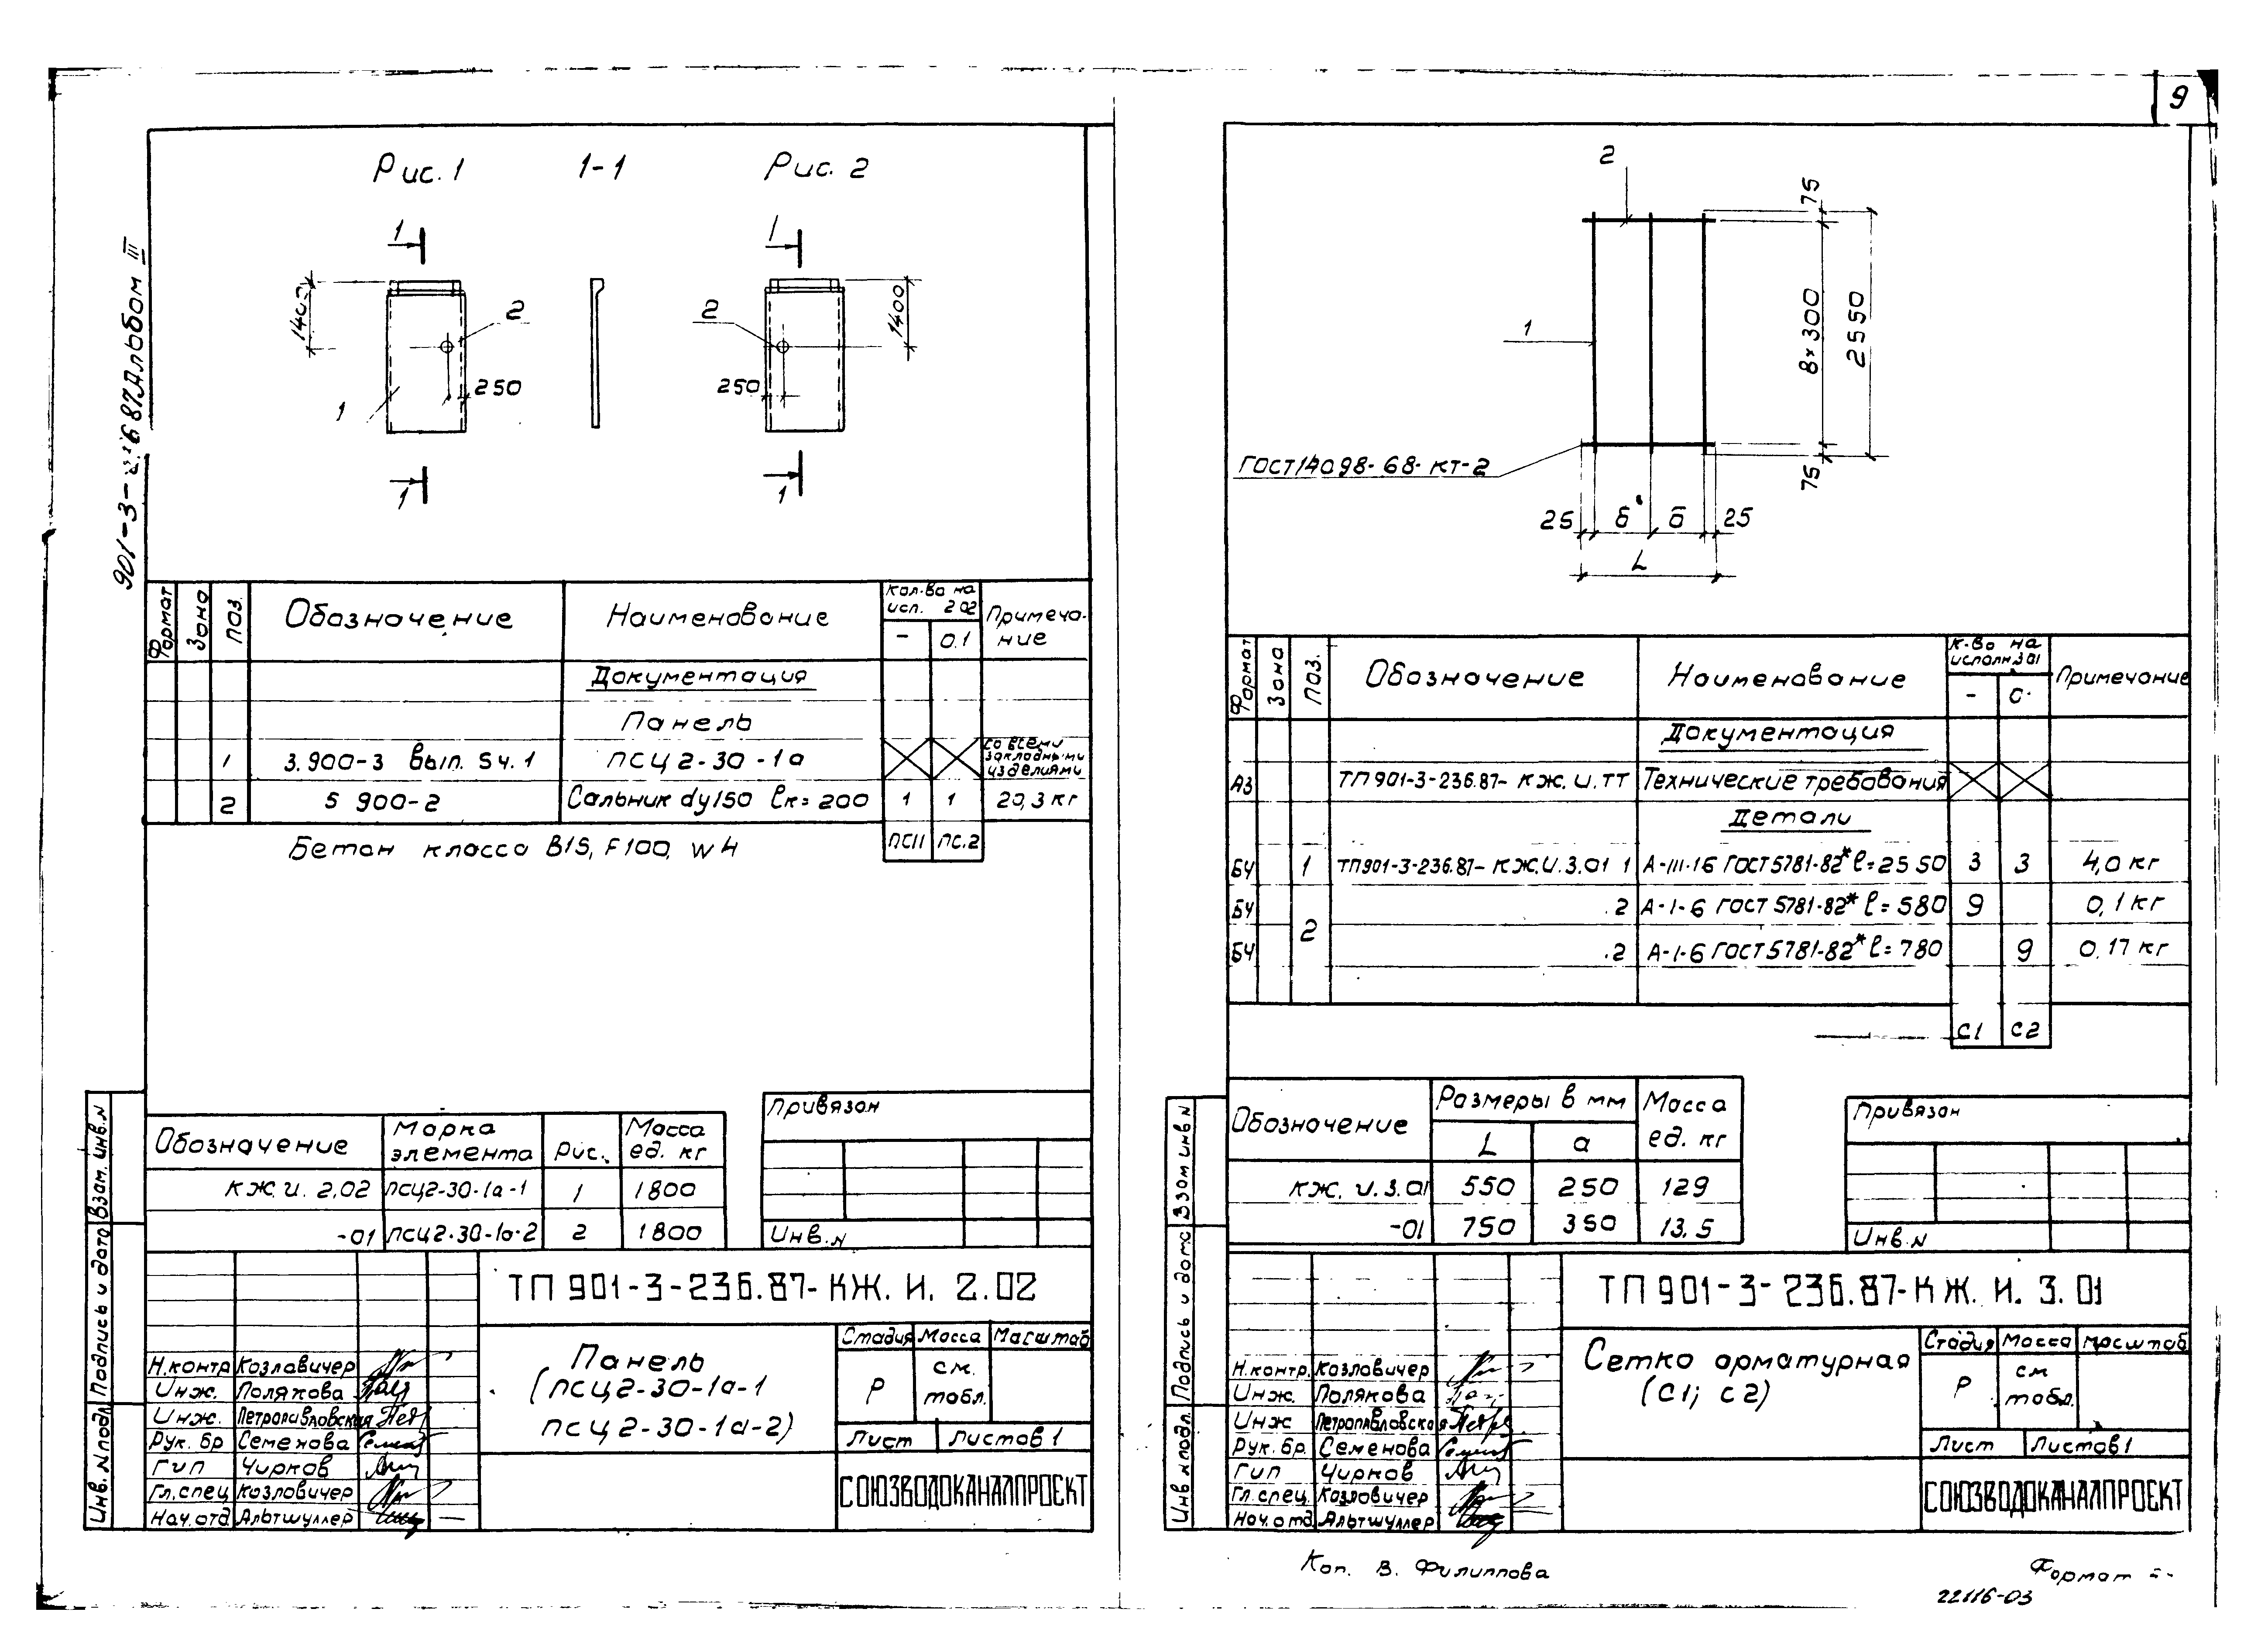 9
901-3-236.87 Альбом III
Рис. 1
1-1
Рис. 2
1
1
1400
2
2
1400
250
250
1
1
1
Формат
Зона
Поз.
Обозначение
Наименование
Кол-во на
исп. 2 02
Примеча-
ние
-
0.1
Документация
Панель
1
3.900-3 вып. 5 ч. 1
ПСЦ 2-30-1а
со всеми
закладными
изделиями
2
5 900-2
Сальник dy150 ℓк=200
1
1
20,3 кг
Бетон класса В15, F100, W4
ПС11
ПС.2
Обозначение
Марка
элемента
Рис.
Масса
ед. кг
КЖ.И. 2.02
ПСЦ2-30-1а-1
1
1800
-01
ПСЦ2-30-1а-2
2
1800
Привязан
Инв.N
Взам. инв.N
Подпись и дата
Инв. N подл.
ТП 901-3-236.87-КЖ.И. 2.02
Н.контр Козлавичер
Инж. Полякова
Инж. Петропавловская
Рук. бр Семенова
Гип Чирков
Гл.спец Козловичер
Нач.отд Альтшуллер
Панель
(ПСЦ2-30-1а-1
ПСЦ2-30-1а-2)
Стадия
Масса
Масштаб
Р
см.
табл.
Лист
Листов 1
СОЮЗВОДОКАНАЛПРОЕКТ
2
75
1
8×300
2550
ГОСТ 14098-68-КТ-2
75
25
б
б
25
L
Формат
Зона
Поз.
Обозначение
Наименование
К-во на
исполн 3 01
Примечание
-
0
Документация
А3
ТП 901-3-236.87-КЖ.И.ТТ
Технические требования
Детали
БЧ
1
ТП901-3-236.87-КЖ.И.3.01 1
А-III-16 ГОСТ 5781-82* ℓ=2550
3
3
4,0 кг
БЧ
2
.2
А-I-6 ГОСТ 5781-82* ℓ=580
9
0,1 кг
БЧ
.2
А-I-6 ГОСТ 5781-82* ℓ=780
9
0,17 кг
С1
С2
Обозначение
Размеры в мм
Масса
ед. кг
L
а
КЖ.И.3.01
550
250
129
-01
750
350
13,5
Привязан
Инв.N
Взам инв N
Подпись и дата
Инв N подл.
ТП 901-3-236.87-КЖ.И. 3.01
Н.контр. Козловичер
Инж. Полякова
Инж Петропавловская
Рук. бр. Семенова
Гип Чирков
Гл.спец. Козловичер
Нач.отд. Альтшуллер
Сетка арматурная
(С1; С2)
Стадия
Масса
Масштаб
Р
см
табл.
Лист
Листов 1
СОЮЗВОДОКАНАЛПРОЕКТ
Коп. В. Филиппова
Формат
22116-03